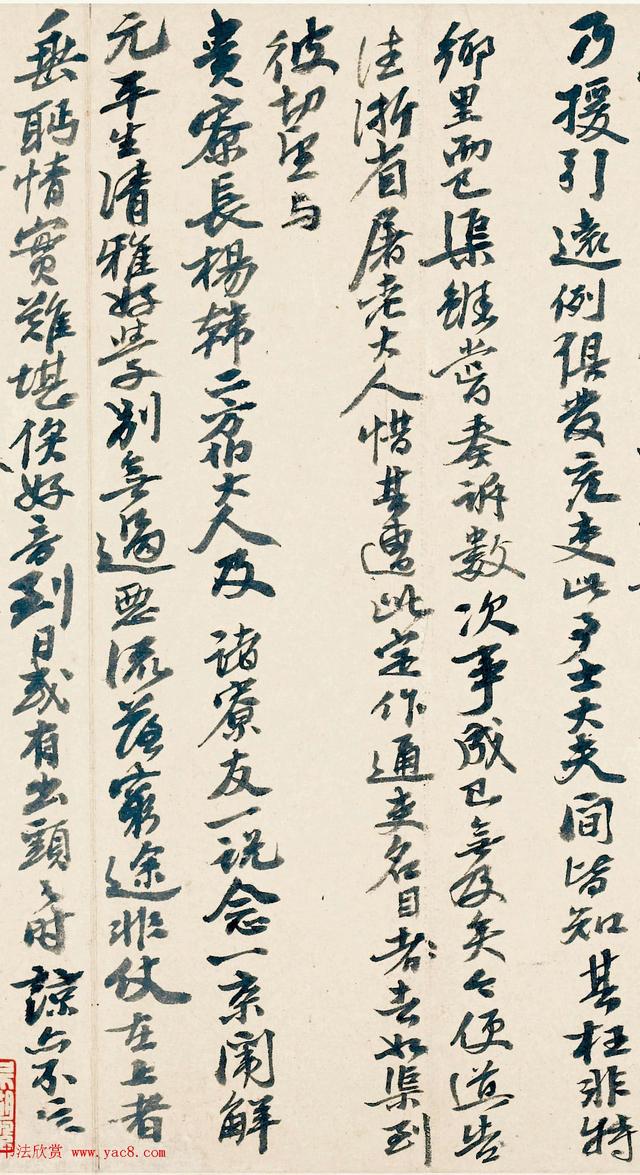 乃援引遠例俱發充吏此事士大夫間皆知其枉非特
鄉里而已渠雖嘗奏訴數次事成已無及矣今便道告
往浙省屠老大人惜其遭此定作通吏名目者去如渠到
彼切望與
貴寮長楊韓二方伯大人及諸寮友一說念一京闈解
元平生清雅好學別無過惡流落窮途非仗在上者
垂眄情實難堪俟好音到日或有出頭之時諒亦不忘
书法欣赏 www.yac8.com